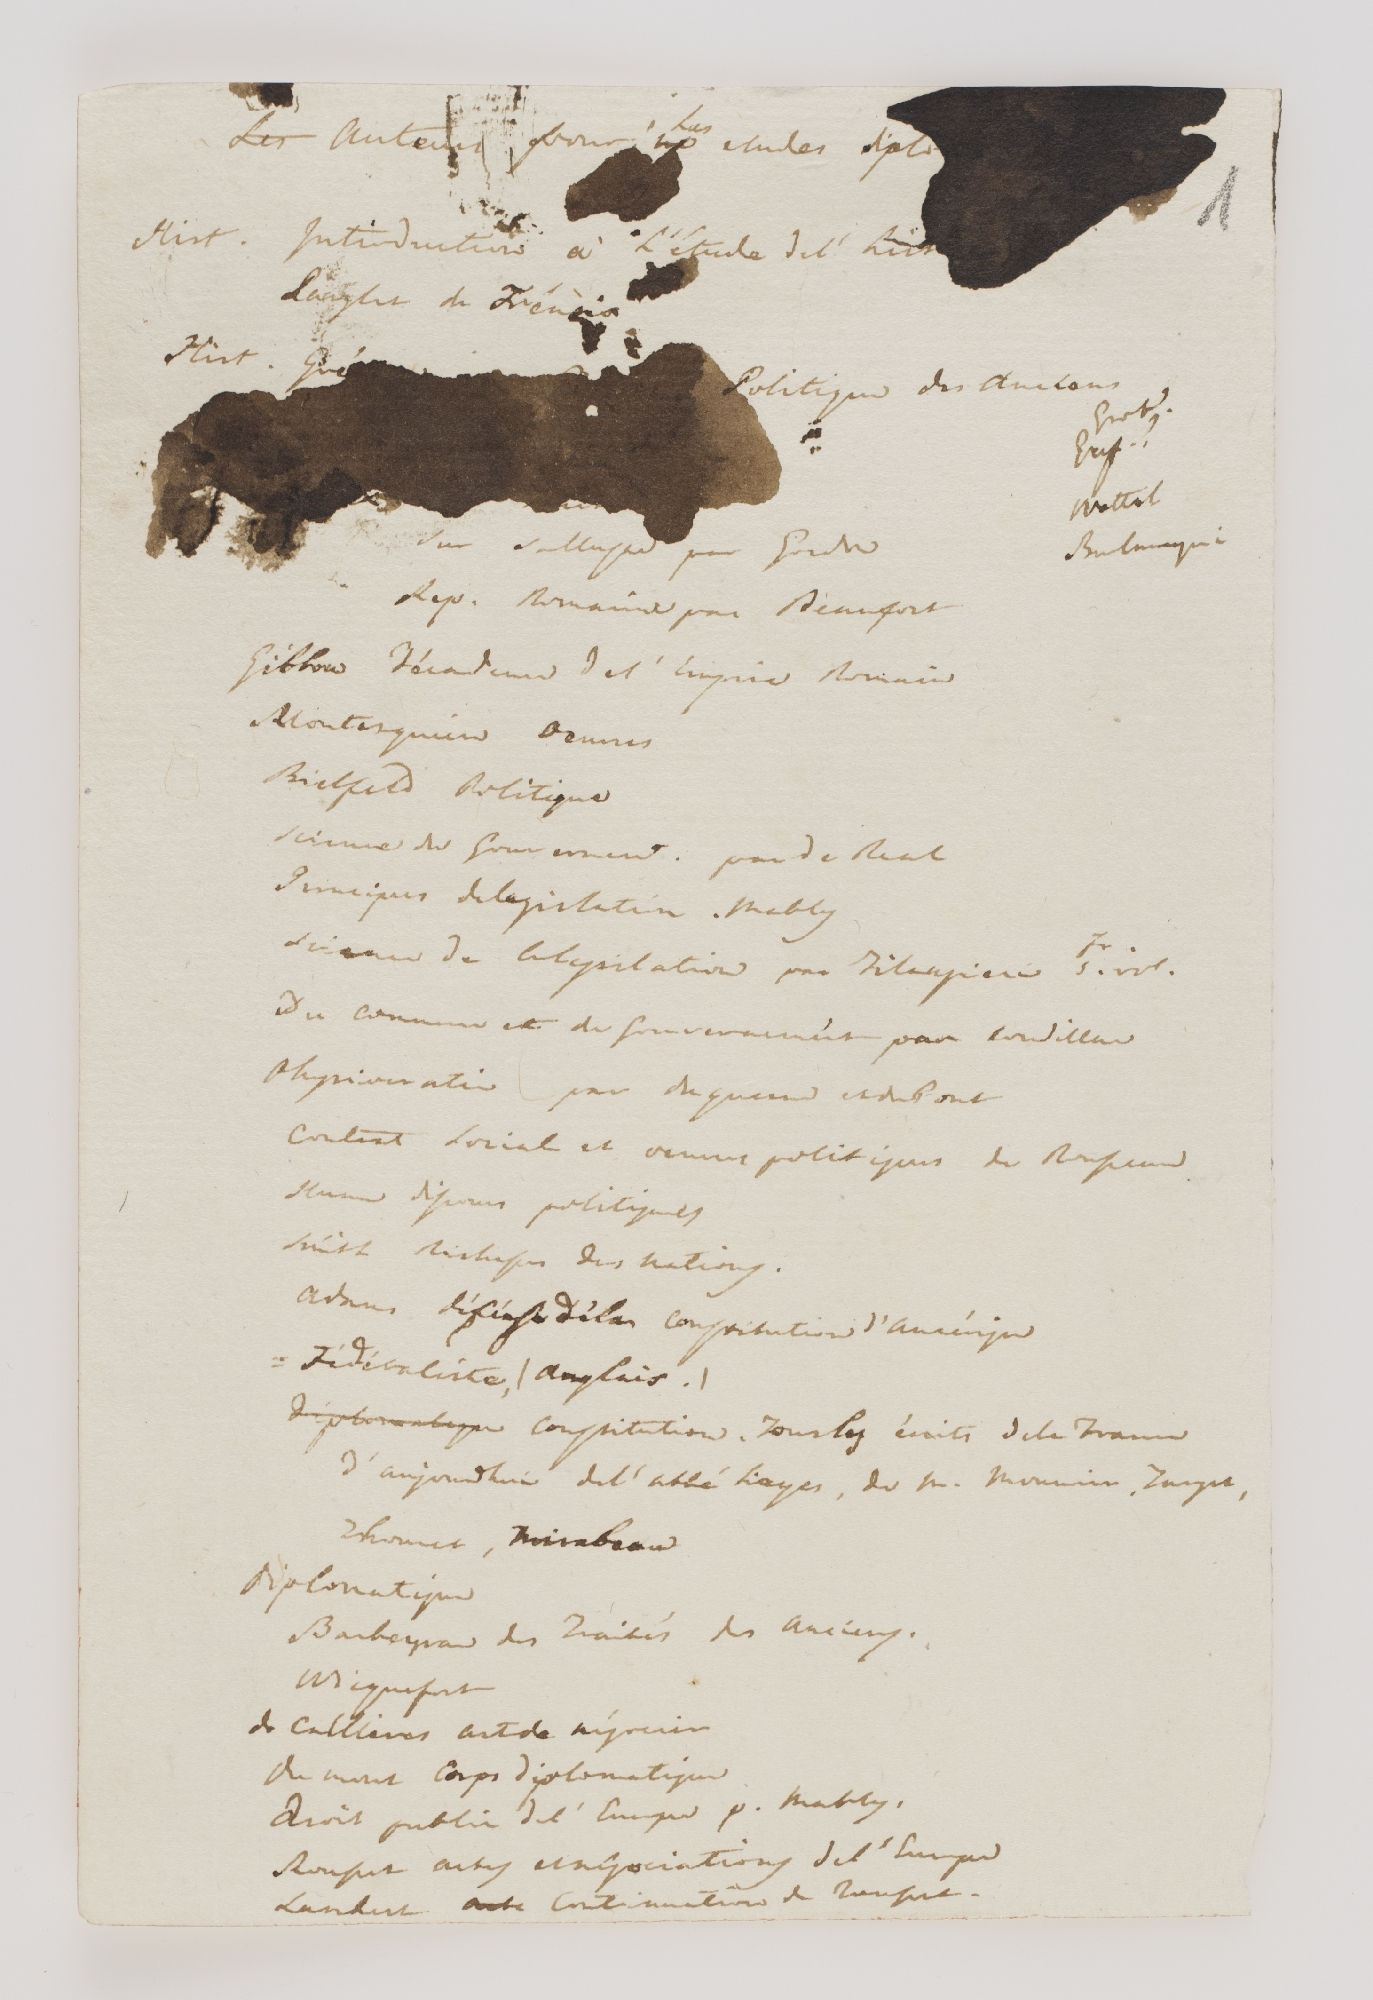 Les Auteurs pour les etudes diplo
1
Hist. Introduction à L'étude del' his
Langlet du Frénoio
Hist. Gué Politique des Anciens
Grot.
Wattel
Burlamaqui
sur Salluste par Gordon
Rep. Romaine par Beaufort
Gibbon Décadence del' Empire Romain
Montesquieu Oeuvres
Bielfeld Politique
Science du Gouvernemt. par de Real
Principes delegislation. Mably
Science de lalegislation par Filangieri 7. vol.
Du commerce et du Gouvernement par Condillac
Physiocratie par duquesne et dupont
Contrat Social et oeuvres politiques de Rousseau
Hume discours politiques
Smith Richesses des nations.
Adams défense dela constitution d'Amérique
= Fédéraliste, (anglais.)
diplomatique constitution. Tous les écrits dela France
d'aujourdhui del'abbé Sieyes, de M. Mounier, Target,
Thouret, Mirabeau
Diplomatique
Barbeyrac des Traités des Anciens.
Wiquefort
de Callieres art de négocier
Du mont Corps diplomatique
droit public del'Europe p. Mably.
Rousset actes et négociations del'Europe
Lambert acte continuation de Rousset.